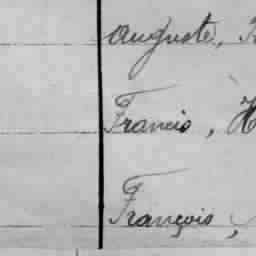 Auguste,
Francis, H
François,